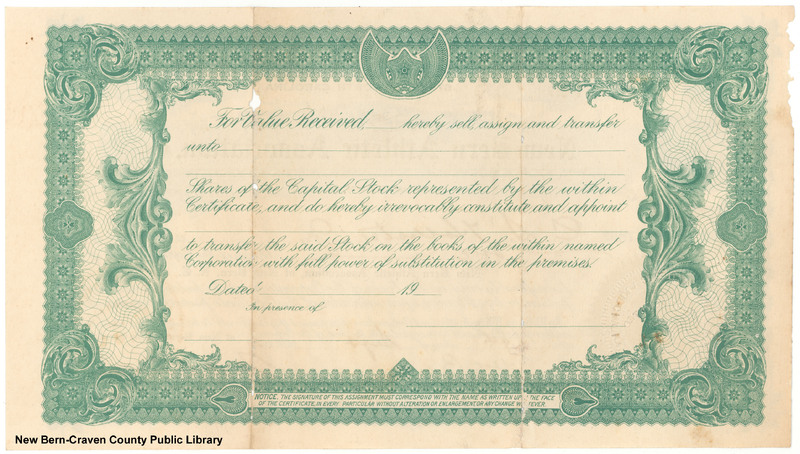 For Value Received, ___ hereby sell, assign and transfer
unto
Shares of the Capital Stock represented by the within
Certificate, and do hereby irrevocably constitute and appoint
to transfer the said Stock on the books of the within named
Corporation with full power of substitution in the premises.
Dated ___ 19__
In presence of
NOTICE. THE SIGNATURE OF THIS ASSIGNMENT MUST CORRESPOND WITH THE NAME AS WRITTEN THE FACE
OF THE CERTIFICATE, IN EVERY PARTICULAR WITHOUT ALTERATION OR ENLARGEMENT, OR ANY CHANGE
New Bern-Craven County Public Library